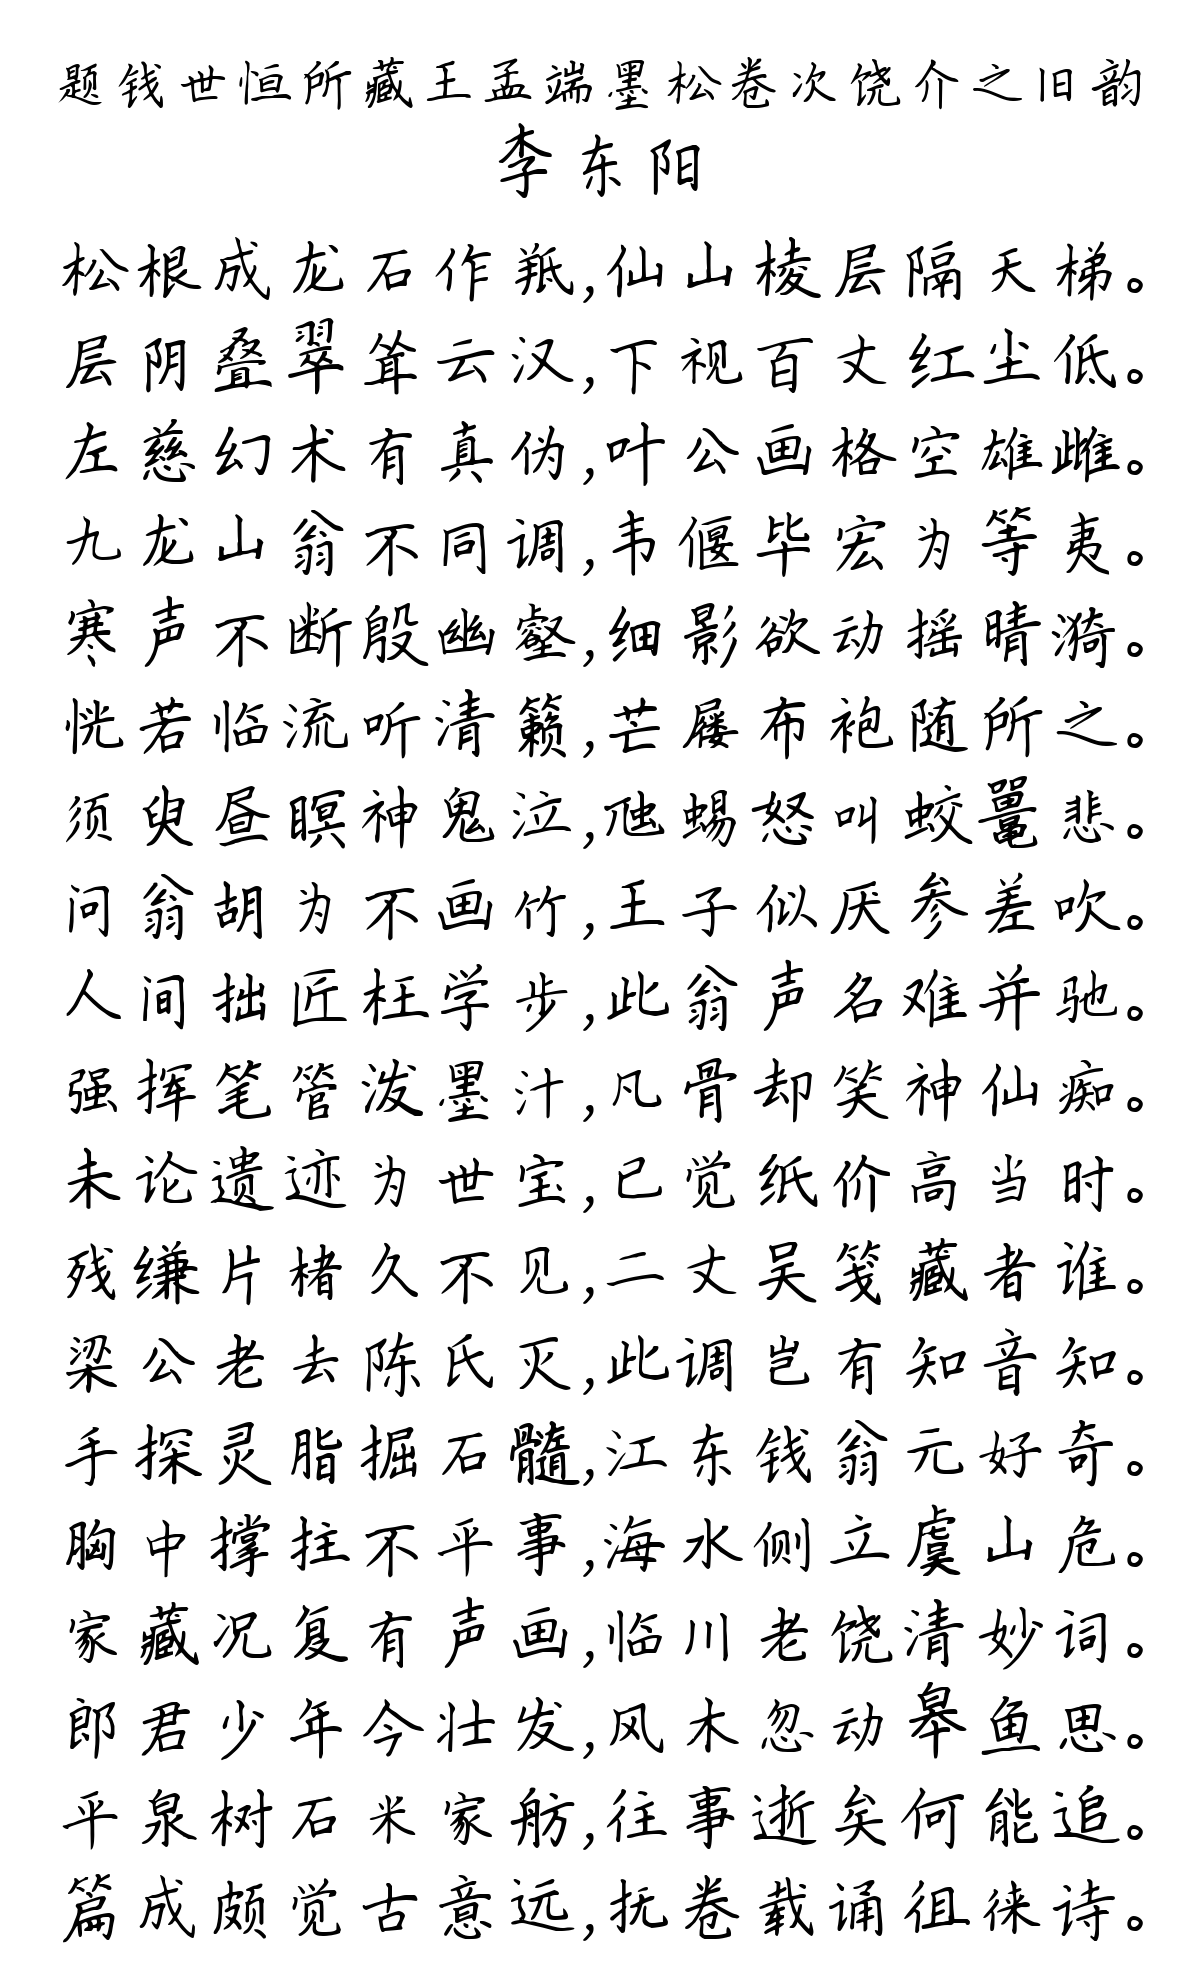 题钱世恒所藏王孟端墨松卷次饶介之旧韵
李东阳
松根成龙石作羝,仙山棱层隔天梯。
层阴叠翠耸云汉,下视百丈红尘低。
左慈幻术有真伪,叶公画格空雄雌。
九龙山翁不同调,韦偃毕宏为等夷。
寒声不断殷幽壑,细影欲动摇晴漪。
恍若临流听清籁,芒屦布袍随所之。
须臾昼暝神鬼泣,虺蜴怒叫蛟鼍悲。
问翁胡为不画竹,王子似厌参差吹。
人间拙匠枉学步,此翁声名难并驰。
强挥笔管泼墨汁,凡骨却笑神仙痴。
未论遗迹为世宝,已觉纸价高当时。
残缣片楮久不见,二丈吴笺藏者谁。
梁公老去陈氏灭,此调岂有知音知。
手探灵脂掘石髓,江东钱翁元好奇。
胸中撑拄不平事,海水侧立虞山危。
家藏况复有声画,临川老饶清妙词。
郎君少年今壮发,风木忽动皋鱼思。
平泉树石米家舫,往事逝矣何能追。
篇成颇觉古意远,抚卷载诵徂徕诗。